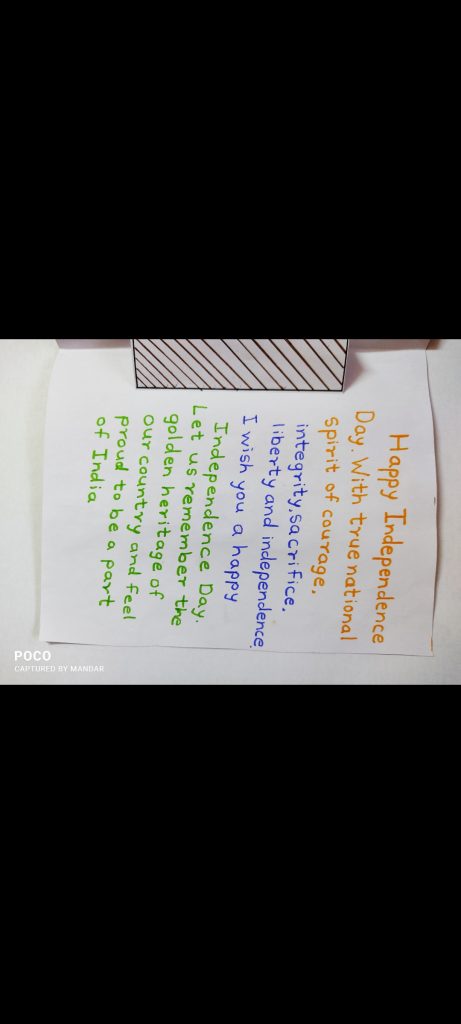 Happy Independence
Day. With true national
spirit of courage,
integrity, sacrifice.
liberty and independence
I wish you a happy
Independence Day.
Let us remember the
golden heritage of
our country and feel
proud to be a part
of India
POCO
CAPTURED BY MANDAR